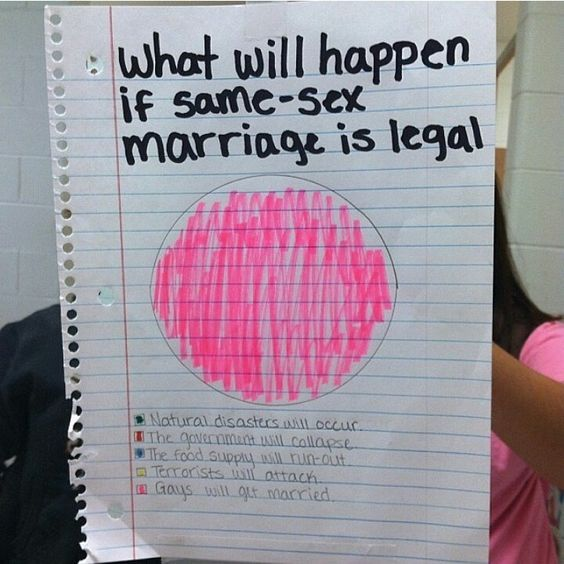 What will happen
if same-sex
marriage is legal
Natural disasters will occur.
The government will collapse.
The food supply will run-out.
Terrorists will attack.
Gays will get married.